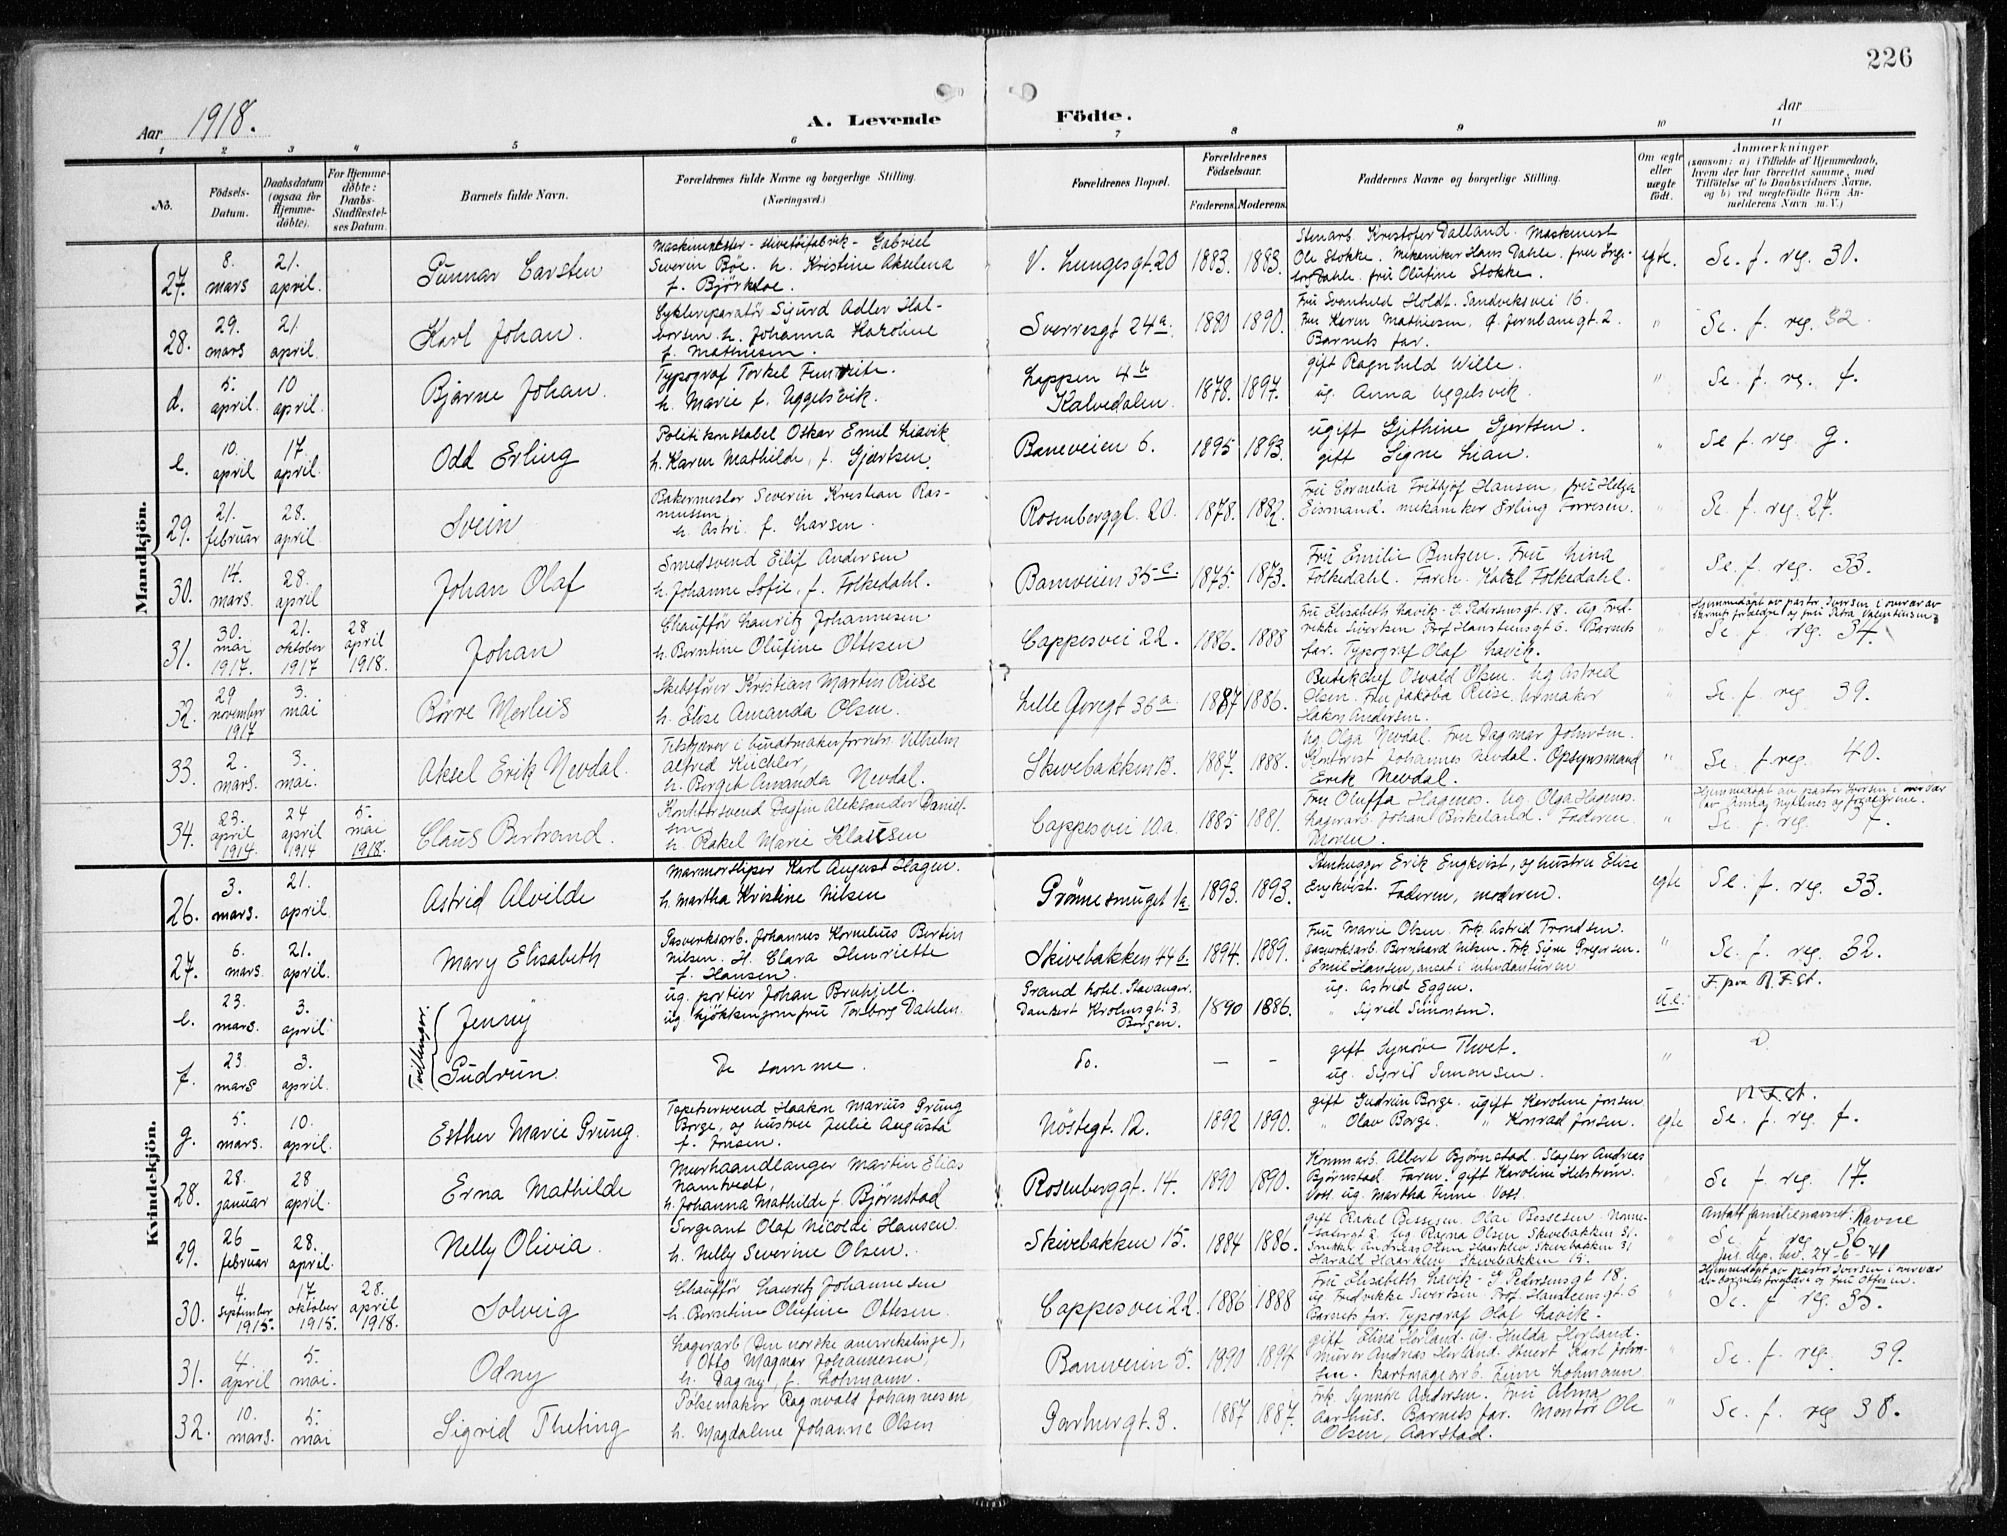 226
Aar 1918.
A. Levende Födte.
Aar
1 2 3 4 5 6 7 8 9 10 11
No.
Födsels-Datum.
Daabsdatum (ogsaa for Hjemme-döbte).
For Hjemme-döbte: Daabs-Stadfæstel-ses Datum.
Barnets fulde Navn.
Forældrenes fulde Navne og borgerlige Stilling.
(Næringsvei.)
Forældrenes Bopæl.
Forældrenes Födselsaar.
Faderens. Moderens.
Faddernes Navne og borgerlige Stilling.
Om ægte eller uægte födt.
Anmærkninger
(saasom: a) i Tilfælde af Hjemmedaab, hvem der har forrettet samme, med Tilföielse af to Daabsvidners Navne, og b) ved uægtefödte Börn An-melderens Navn m. V.)
Mandkjön.
27. 8. mars 21. april. Gunnar Carsten
Gabriel
Severin Böe. h. Kristine Akselena
f. Björkeloe.
V. Lungesgt. 20 1883. 1883.
Stenarb. Kristofer Dalland. Maskinist
Ole Stokke. Mekaniker Hans Dahle. fru Inge-
borg Dahle. fru Olufine Stokke.
egte. Se. f. reg. 30.
28. 29. mars 21. april. Karl Johan.
Sykkelreparatör Sigurd Adler Hal-
vorsen. h. Johanna Karoline
f. Mathiesen.
Sverresgt 24a. 1880 1890.
Fru Svanhild Holdt. Sandviksvei 16.
Fru Karen Mathiesen, Ø. Jernbanegt. 2.
Barnets far.
" Se. f. reg. 32
d. 5. april. 10 april. Bjarne Johan.
Typograf Torkel
h. Marie f. Uggelsvik.
Lappen 4b
Kalvedalen. 1878. 1897.
gift Ragnhild Wille.
ug. Anna Uggelsvik.
" Se. f. reg. f.
e. 10. april 17. april. Odd Erling
Politikonstabel Oskar Emil Liavik
h. Karen Mathilde, f. Gjertsen.
Baneveien 6. 1895 1893.
ugift Gjethine Gjertsen.
gift Signe Lian.
" Se f. reg. g.
29. 21. februar 28. april. Svein
Bakermester Severin Kristian Ras-
mussen
h. Astri. f. Larsen.
Rosenberggt. 20. 1878. 1882.
Fru Cornelia Frithjof Hansen, fru Helga
Eismand. mekaniker Erling Torresen.
" Se f. reg. 27.
30. 14. mars. 28. april Johan Olaf
Smedsvend Eilif Andersen
h. Johanne Sofie, f. Folkedahl.
Baneveien 35c. 1875. 1873.
Fru Emilie Bentzen. Fru Lina
Folkedahl. Faren. Karl Folkedahl.
" Se. f. reg. 33.
31. 30. mai 1917. 21. oktober 1917 28 april 1918. Johan
Chaufför Lauritz Johannesen
h. Berntine Olufine Ottesen
Cappesvei 22. 1886. 1888
Fru Elisabeth Lavik - I. Pedersensgt. 18. ug Fred-
rikke Sivertsen Prof. Hansteensgt 6. Barnets
far. Typograf Olaf Lavik.
Hjemmedöpt av pastor Iversen i overvær av
barnets forældre og fru Petra Valentinsen.
" Se. f. reg. 34.
32. 29 november 1917 3. mai Börre Merleis
Skibsförer Kristian Martin Riise
h. Elise Amanda Olsen.
Lille Övregt 36a. 1887 1886.
Butikchef Osvald Olsen. Ug Astrid
Olsen. Fru Jakoba Riise. Urmaker
Hakon Andersen.
" Se. f. reg. 39.
33. 2. mars. 3. mai. Aksel Erik Nevdal.
Tilskjærer i buntmakerforretn. Vilhelm
Alfred Küchler,
h. Berget Amanda Nevdal.
Skivebakken 13. 1887. 1888.
Ug Olga Nevdal. Fru Dagmar Johnsen.
Kontorist Johannes Nevdal. Opsynsmand
Erik Nevdal.
" Se. f. reg. 40.
34. 23. april 1914. 24 april 1914 5. mai 1918. Claus Bertrand.
Konditorsvend Dagfin Aleksander Daniel-
sen
h. Rakel Marie Klausen
Cappesvei 10a. 1885 1881.
Fru Oluffa Hagenes. Ug. Olga Hagenes.
Lagerarb. Johan Birkeland. Faderen.
Moren.
Hjemmedöpt av pastor Iversen i overvær
av Anna
" Se. f. reg. 7.
Kvindekjön.
26. 3. mars. 21. april. Astrid Alvilde
Marmorsliper Karl August Hagen.
h. Martha Kristine Nilsen
Grönnesmuget 1a. 1893. 1893.
Stenhugger Erik Engkvist, og hustru Elise
Engkvist. Faderen, moderen.
egte Se. f. reg. 33.
27. 6. mars. 21. april. Mary Elisabeth
Gasverksarb. Johannes Kornelius Bertin
Nilsen. H. Clara Henriette
f. Hansen.
Skivebakken 44b. 1894. 1889.
Fru Marie Olsen. Frk Astrid Trondsen.
Gasverksarb. Bernhard Nilsen. Frk Signe Gregersen.
Emil Hansen, ansat i intendanturen
" Se. f. reg. 32.
e. 23. mars. 3. april. Tvillinger: Jenny
ug. portier Johan Bruhjell.
ug. kjökkenjomfru Torborg Dahlen.
Grand hotel. Stavanger.
Dankert Krohnsgt. 3. Bergen. 1890 1886.
ug. Astrid Eggen.
" Sigrid Simonsen.
u.e. F. paa K. F. st.
f. 23. mars 3. april. Gudrun.
De samme.
do. — —
gift Synöve Thvet.
ug. Sigrid Simonsen.
"
g. 5. mars. 10. april. Esther Marie Grung.
Tapetsersvend Haakon Marius Grung
Borge, og hustru Julie Augusta
f. Jonsen.
Nöstegt. 12. 1892 1890.
gift Gudrun Borge. ugift Karoline Jonsen.
" Olav Borge. " Konrad Jonsen.
egte Se. f. reg. f.
28. 28. januar 28 april. Erna Mathilde
Murhaandlanger Martin Elias
Namtvedt,
h. Johanna Mathilde f. Björnstad
Rosenberggt. 14. 1890 1890.
Komm.arb. Albert Björnstad. Slagter Andreas
Björnstad Faren. gift Karoline Helström.
Voss. ug. Martha Finne Voss.
Se f. reg. 17.
29. 26 februar 28. april. Nelly Olivia.
Sergeant Olaf Nicolai Hansen.
h. Nelly Severine Olsen.
Skivebakken 15. 1884 1886.
gift Rakel Bessesen. Olai Bessesen.
Ug Ragna Olsen Skivebakken 31.
Snekker Andreas Olsen Haarklev, Skivebakken 31
Harald Haarklev Skivebakken 15.
Antatt familienavnet: Ravne
Se f reg 36
Jus. dep. bev. 24-6-41
30. 4. september 1915. 17. oktober 1915. 28. april 1918. Solveig
Chaufför Lauritz Johannesen
h. Berntine Olufine Ottesen.
Cappesvei 22. 1886 1888
Fru Elisabeth Lavik - I. Pedersensgt 18.
ug. Fredrikke Sivertsen. Prof. Hansteensgt. 6
Barnets far. Typograf Olaf Lavik.
Hjemmedöpt av pastor Iversen i overvær
av barnets forældre og fru Ottesen.
" Se. f reg. 35.
31. 4. april 5. mai. Odny
Lagerarb (Den norske amerikalinje),
Otto Magnar Johannesen,
h. Dagny f. Lohmann.
Baneveien 5. 1890 1894
gift Elina Herland. ug. Hulda Herland.
Murer Andreas Herland. Stuert Karl John-
sen. Finn Lohmann
" Se f. reg. 39.
32. 10. mars. 5. mai Sigrid Theting
Pölsemaker Ragnvald Johannesen,
h. Magdalene Johanne Olsen
Parkurgt. 3. 1887 1887.
Frk. Synnöve Andersen. Fru Alma
Aarhus. Barnets far. Montör Ole
Olsen, Aarstad.
" Se. f. reg 38.